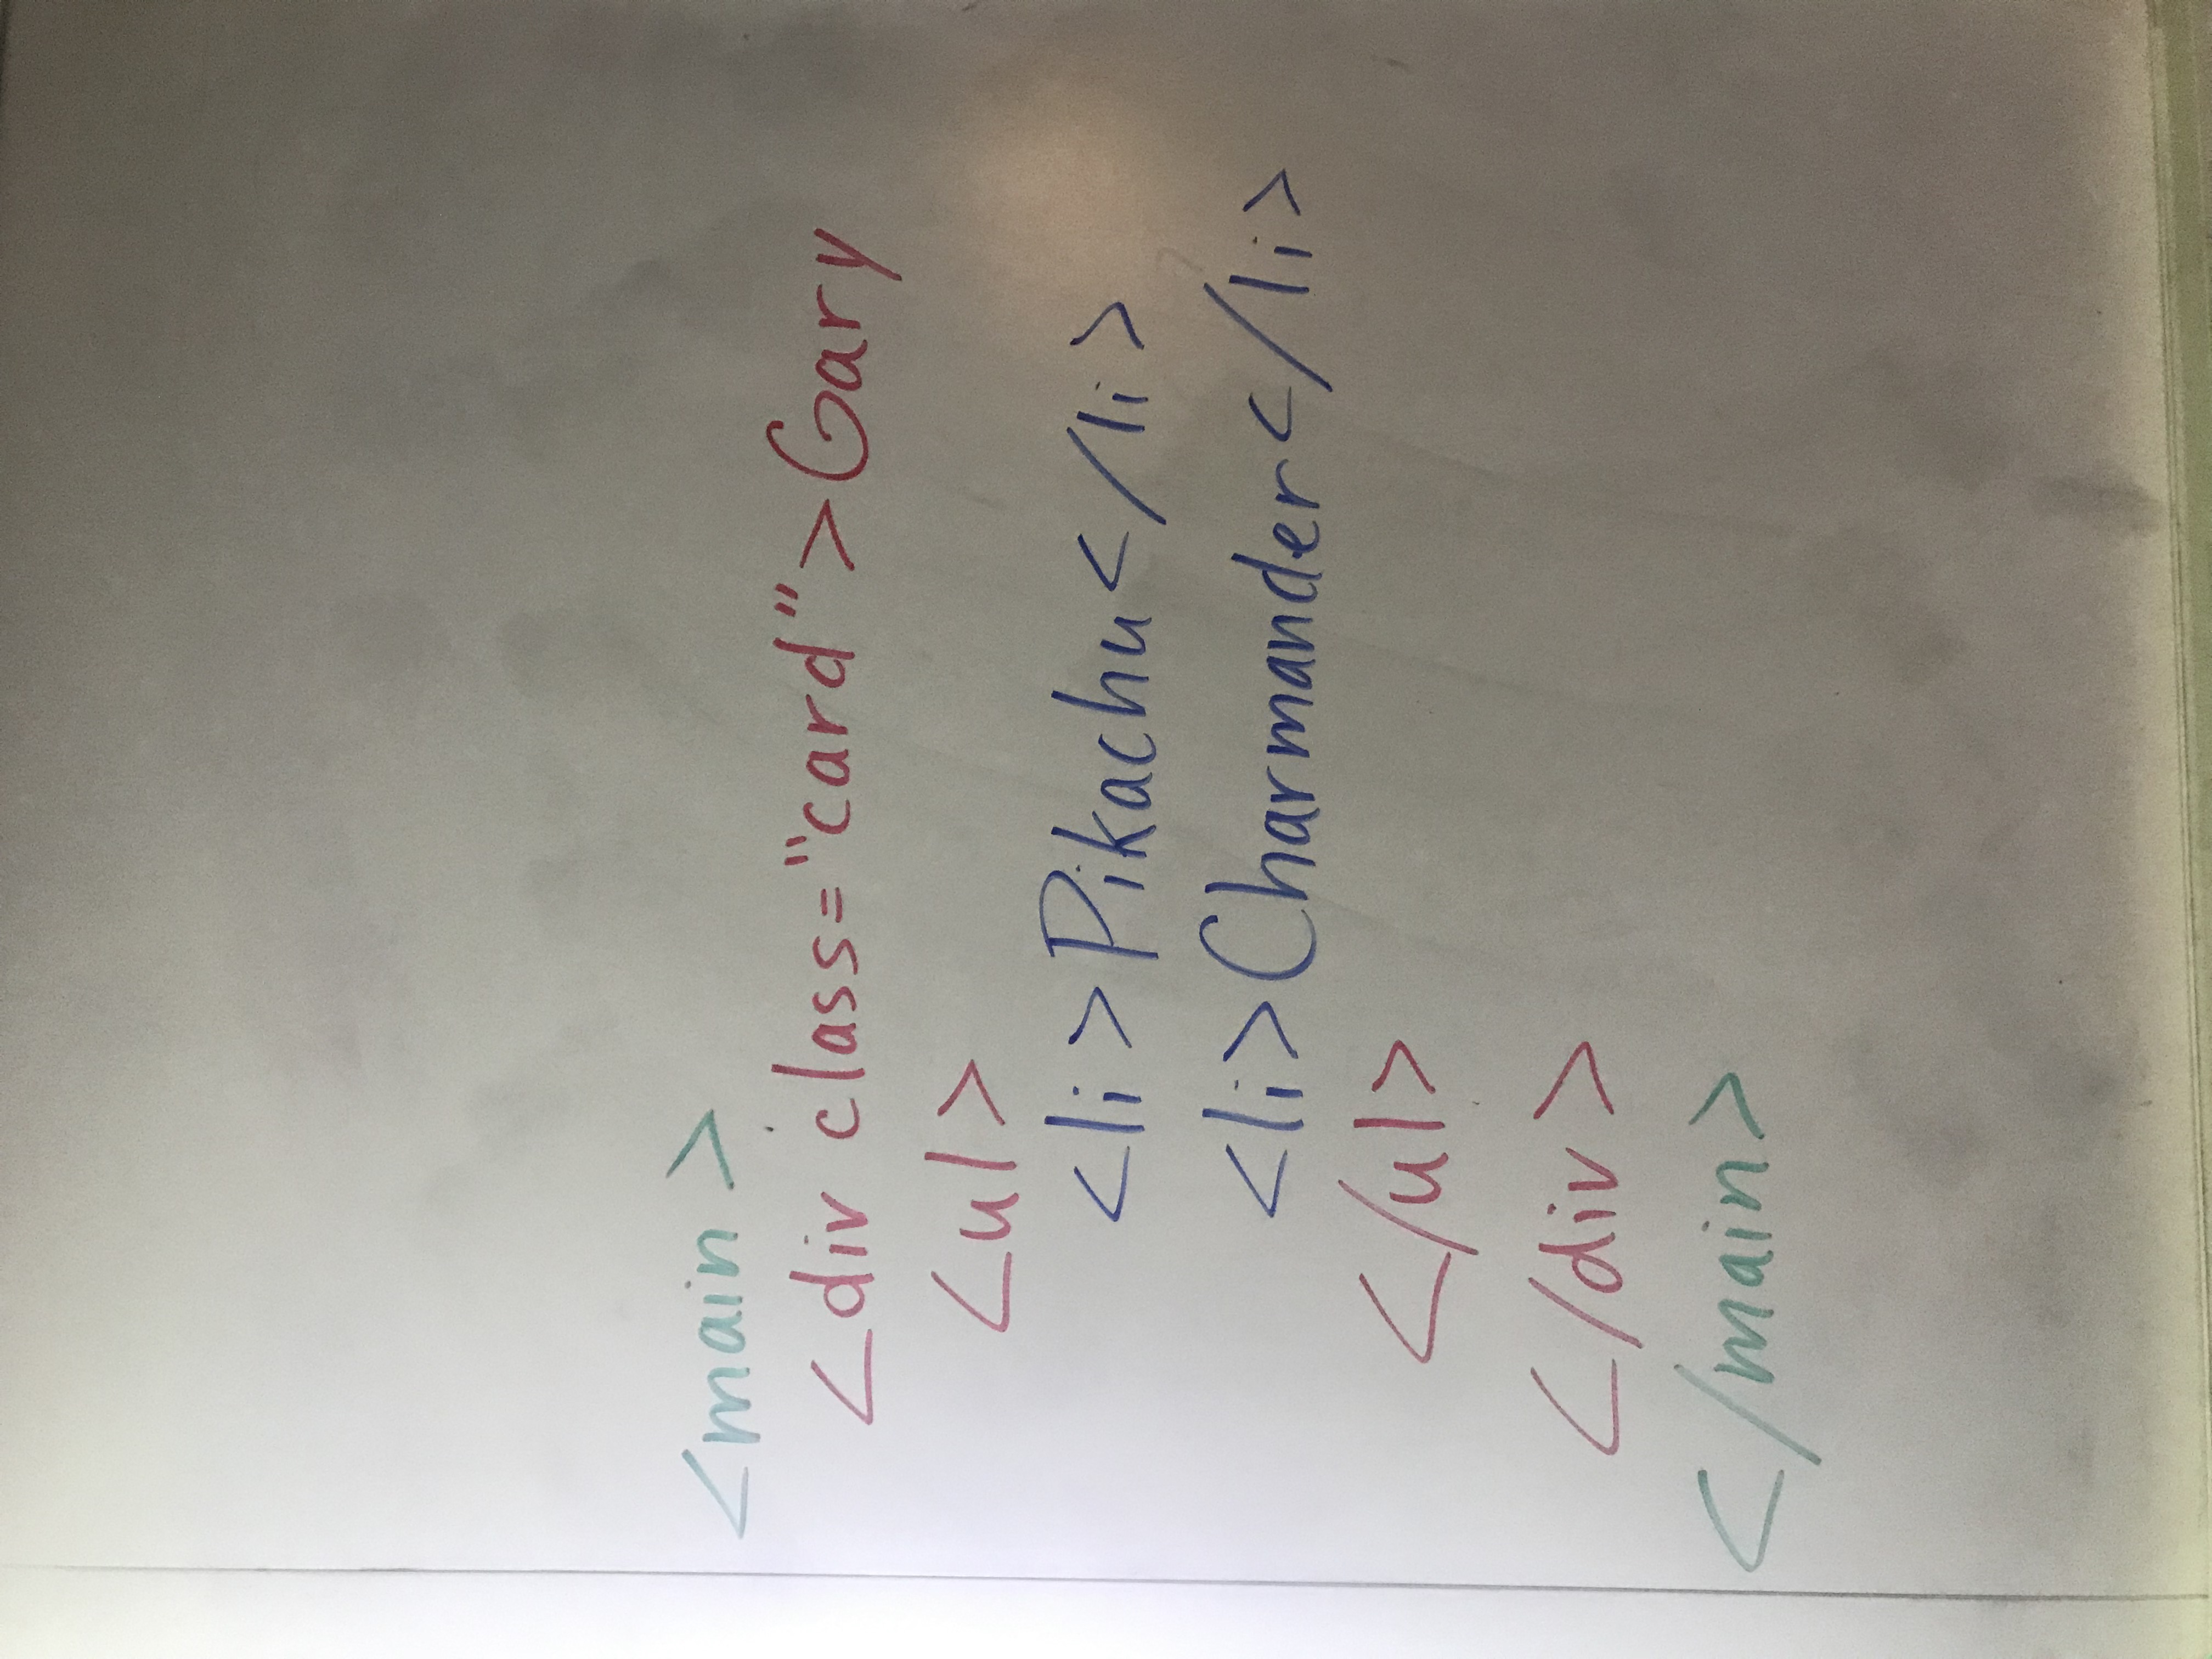 <main>
<div class="card">Gary
<ul>
<li>Pikachu</li>
<li>Charmander</li>
</ul>
</div>
</main>